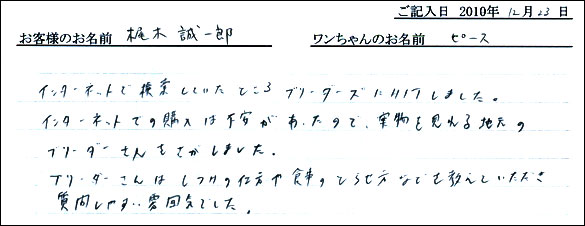 ご記入日 2010年 12月 23日
お客様のお名前 梶木 誠一郎 ワンちゃんのお名前 ピース
インターネットで検索していたところ ブリーダーズにHITしました。
インターネットでの購入は不安があったので、実物を見れる地元の
ブリーダーさんをさがしました。
ブリーダーさんは しつけの仕方や食事の与え方などを教えていただき
質問しやすい雰囲気でした。